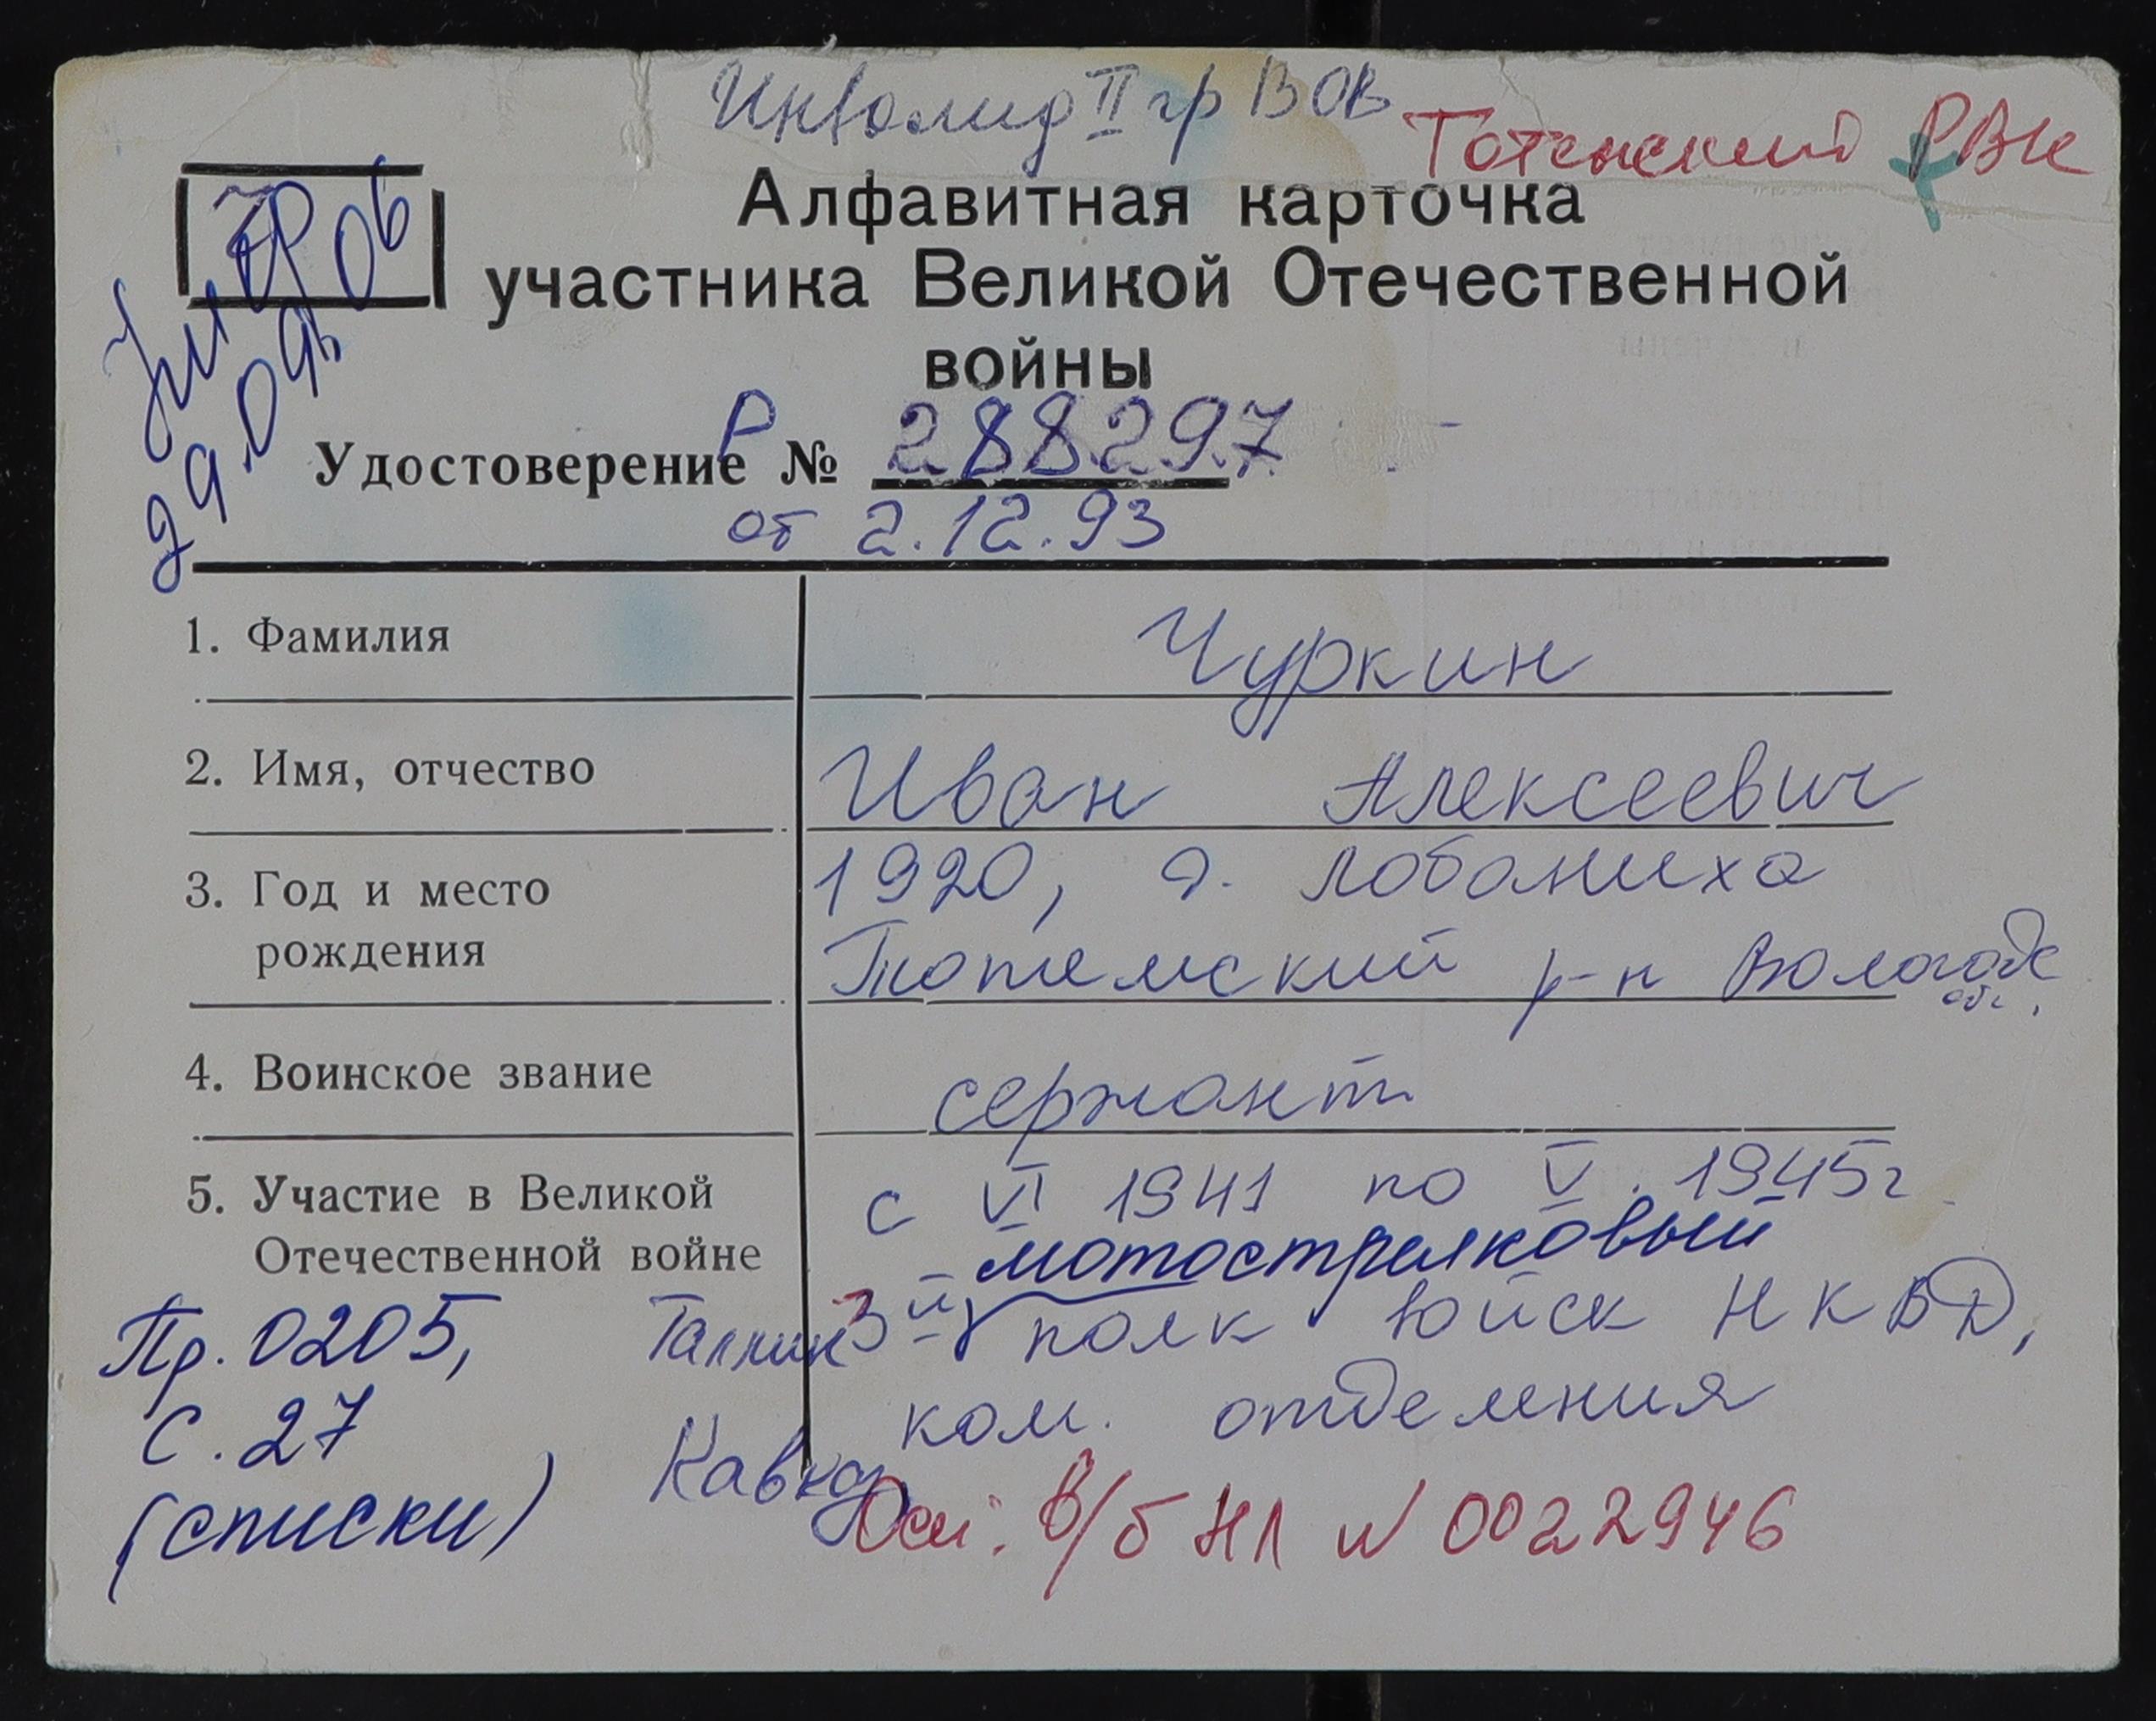 Инвалид II гр ВОВ
Тотемский РВК
Алфавитная карточка
участника Великой Отечественной
войны
Умер
29.09.06
Удостоверение Р № 288297
от 2.12.93
1. Фамилия Чуркин
2. Имя, отчество Иван Алексеевич
3. Год и место 1920, д. Лобаниха
рождения Тотемский р-н Вологодс
обл.
4. Воинское звание сержант
5. Участие в Великой с VI 1941 по V. 1945г
Отечественной войне мотострелковый
Пр. 0205, Таллин 3й полк войск НКВД,
с. 27 ком. отделения
(списки) Кавказ
в/б НЛ № 0022946